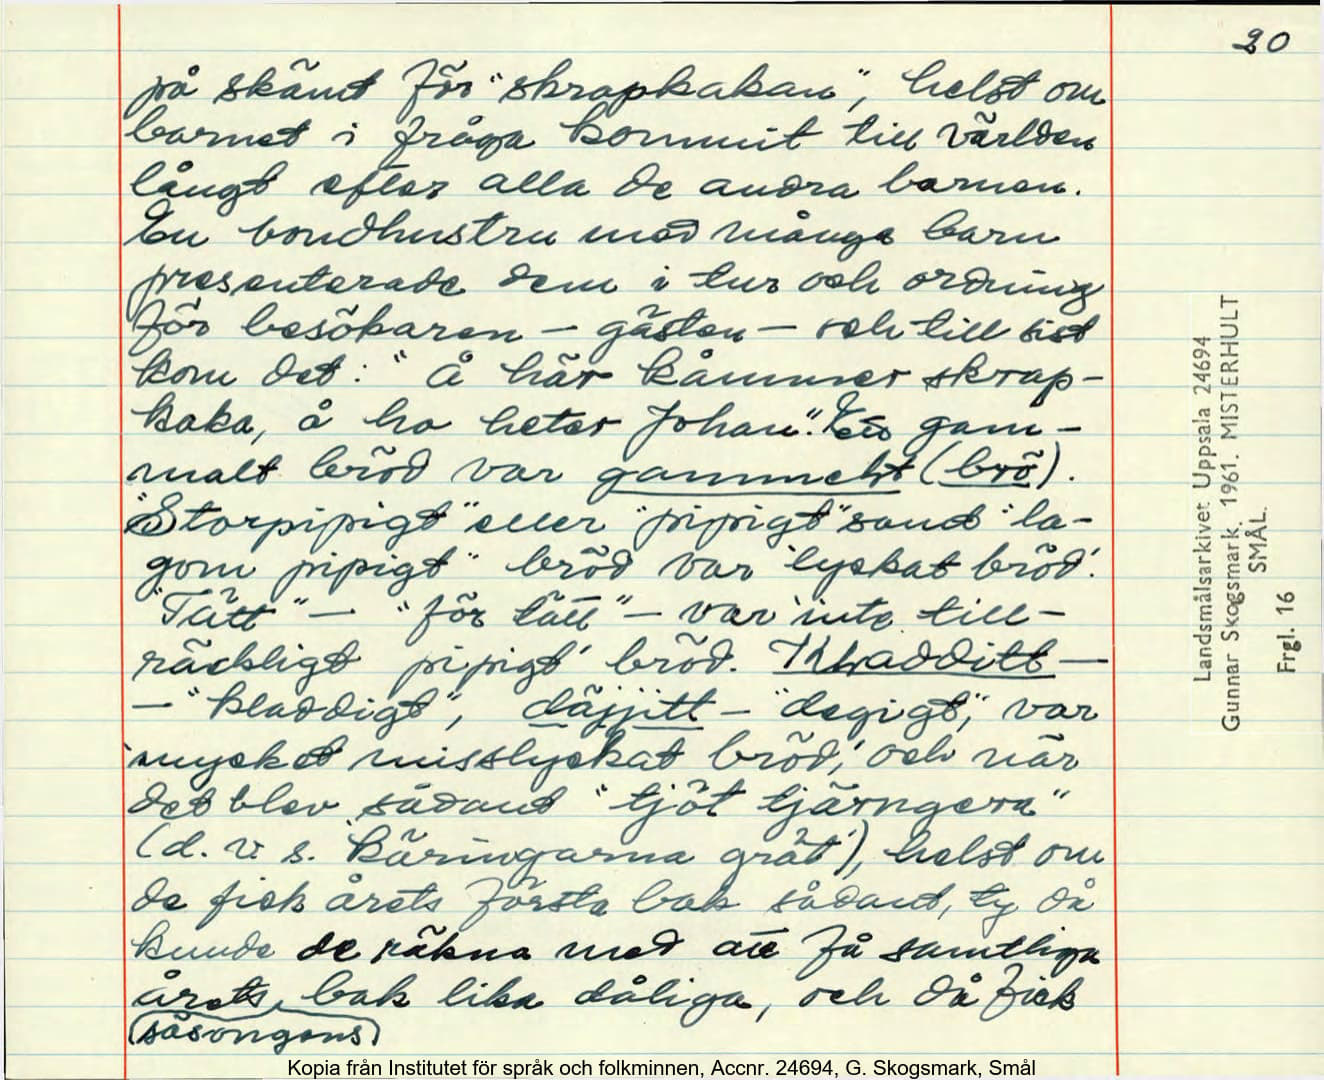 20
på skämt för "skrapkakan", helst om
barnet i fråga kommit till världen
långt efter alla de andra barnen.
En bondhustru med många barn
presenterade dem i tur och ordning
för besökaren — gästen — och till sist
kom det: "Å här kåmmer skrap-
kaka, å ho heter Johan". En gam-
malt bröd var gammelt (brö).
"Storpipigt" eller "pipigt" samt "la-
gom pipigt" bröd var 'lyckat bröd'.
"Tätt" — "för tätt" — var 'inte till-
räckligt pipigt' bröd. Kladditt —
— "kladdigt", däjjitt — "degigt", var
'mycket misslyckat bröd', och när
det blev sådant "tjöt tjärngera"
(d. v. s. 'käringarna gråt'), helst om
de fick årets första bak sådant, ty då
kunde de räkna med att få samtliga
årets bak lika dåliga, och då fick
(säsongens)
Landsmålsarkivet Uppsala 24694
Gunnar Skogsmark. 1961. MISTERHULT
SMÅL.
Frgl. 16
Kopia från Institutet för språk och folkminnen, Accnr. 24694, G. Skogsmark, Smål